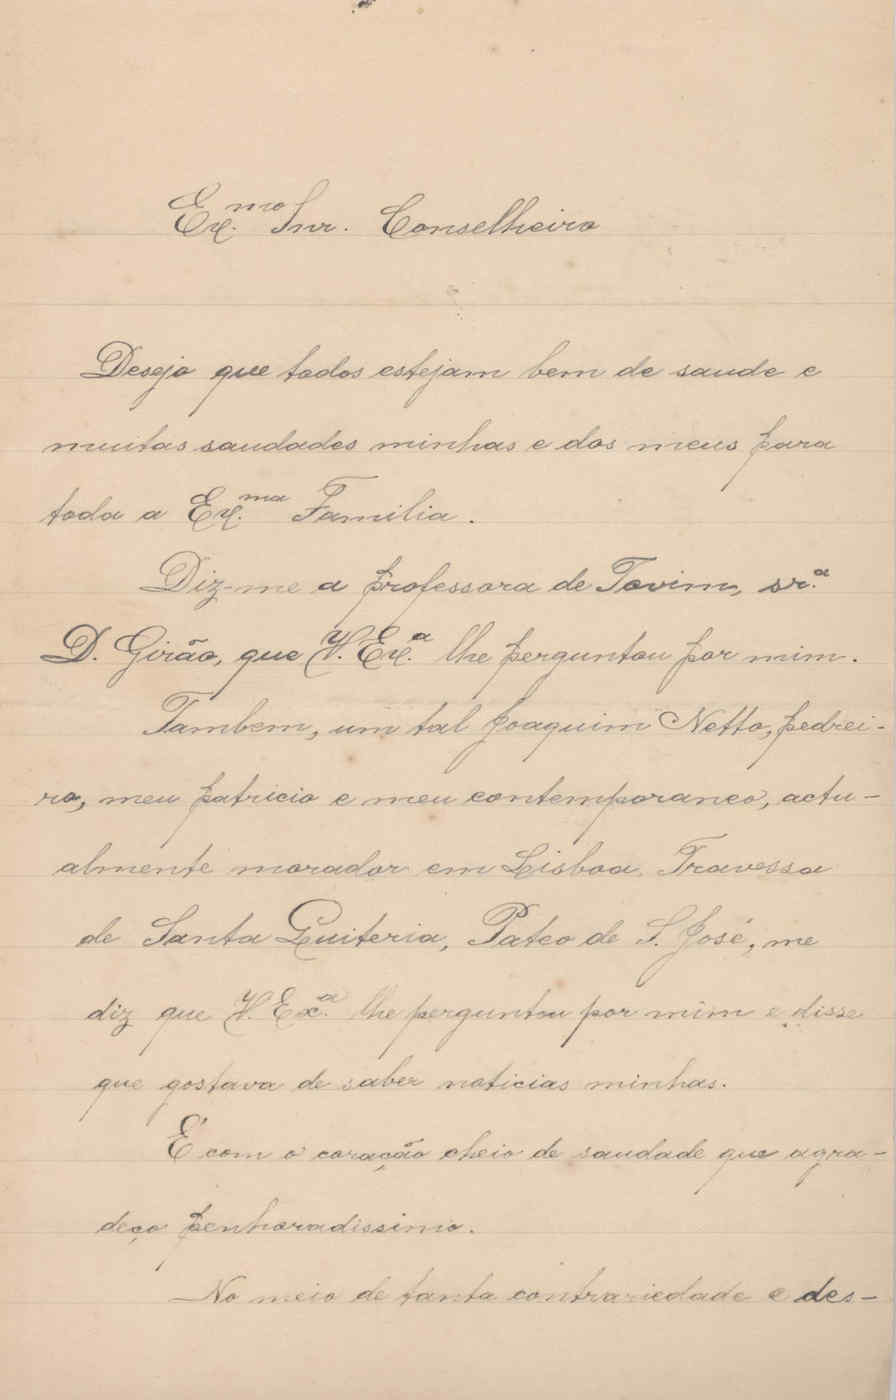 Ex.mo Snr. Conselheiro
Desejo que todos estejam bem de saude e
muitas saudades minhas e dos meus para
toda a Ex.ma Familia.
Diz-me a professora de Tovim, sr.a
D. Girão, que V. Ex.a lhe perguntou por mim.
Tambem, um tal Joaquim Netto, pedrei-
ro, meu patricio e meu contemporaneo, actu-
almente morador em Lisboa, Travessa
de Santa Quiteria, Pateo de S. José, me
diz que V. Ex.a lhe perguntou por mim e disse
que gostava de saber noticias minhas.
É com o coração cheio de saudade que agra-
deço penhoradissimo.
No meio de tanta contrariedade e des-